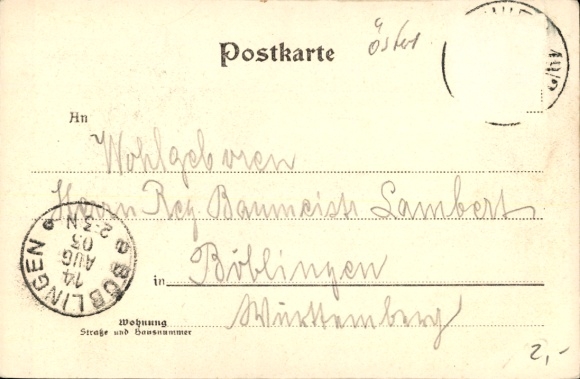 Postkarte
Österr
An
Wohlgeboren
Herrn Reg Baumeistr Lambert
in Böblingen
Württemberg
Wohnung
Straße und Hausnummer
BÖBLINGEN
14
AUG
05
2-3 N
2,-